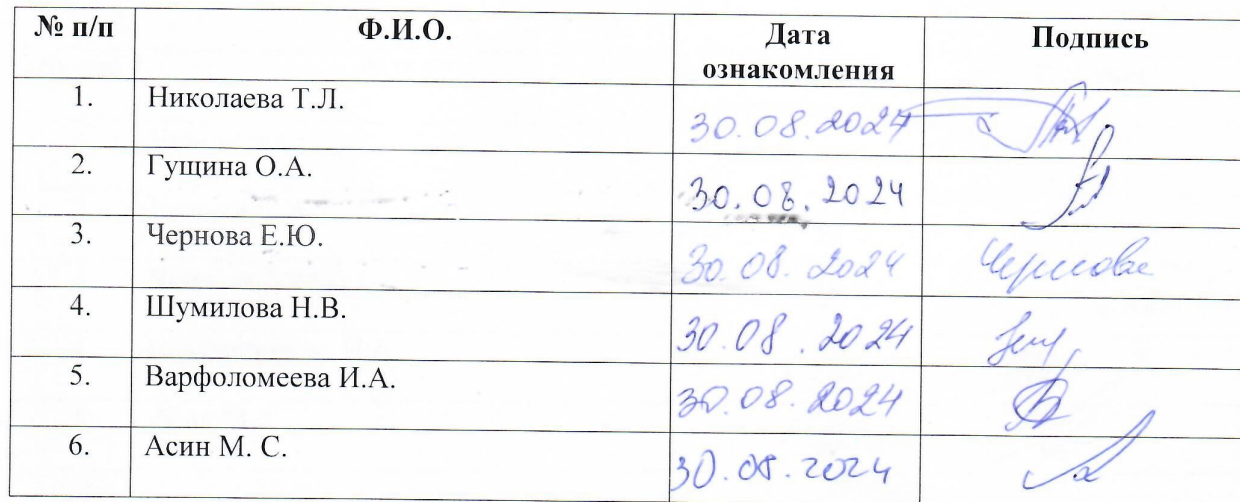 № п/п Ф.И.О. Дата ознакомления Подпись
1. Николаева Т.Л. 30.08.2024
2. Гущина О.А. 30.08.2024
3. Чернова Е.Ю. 30.08.2024 Чернова
4. Шумилова Н.В. 30.08.2024
5. Варфоломеева И.А. 30.08.2024
6. Асин М. С. 30.08.2024